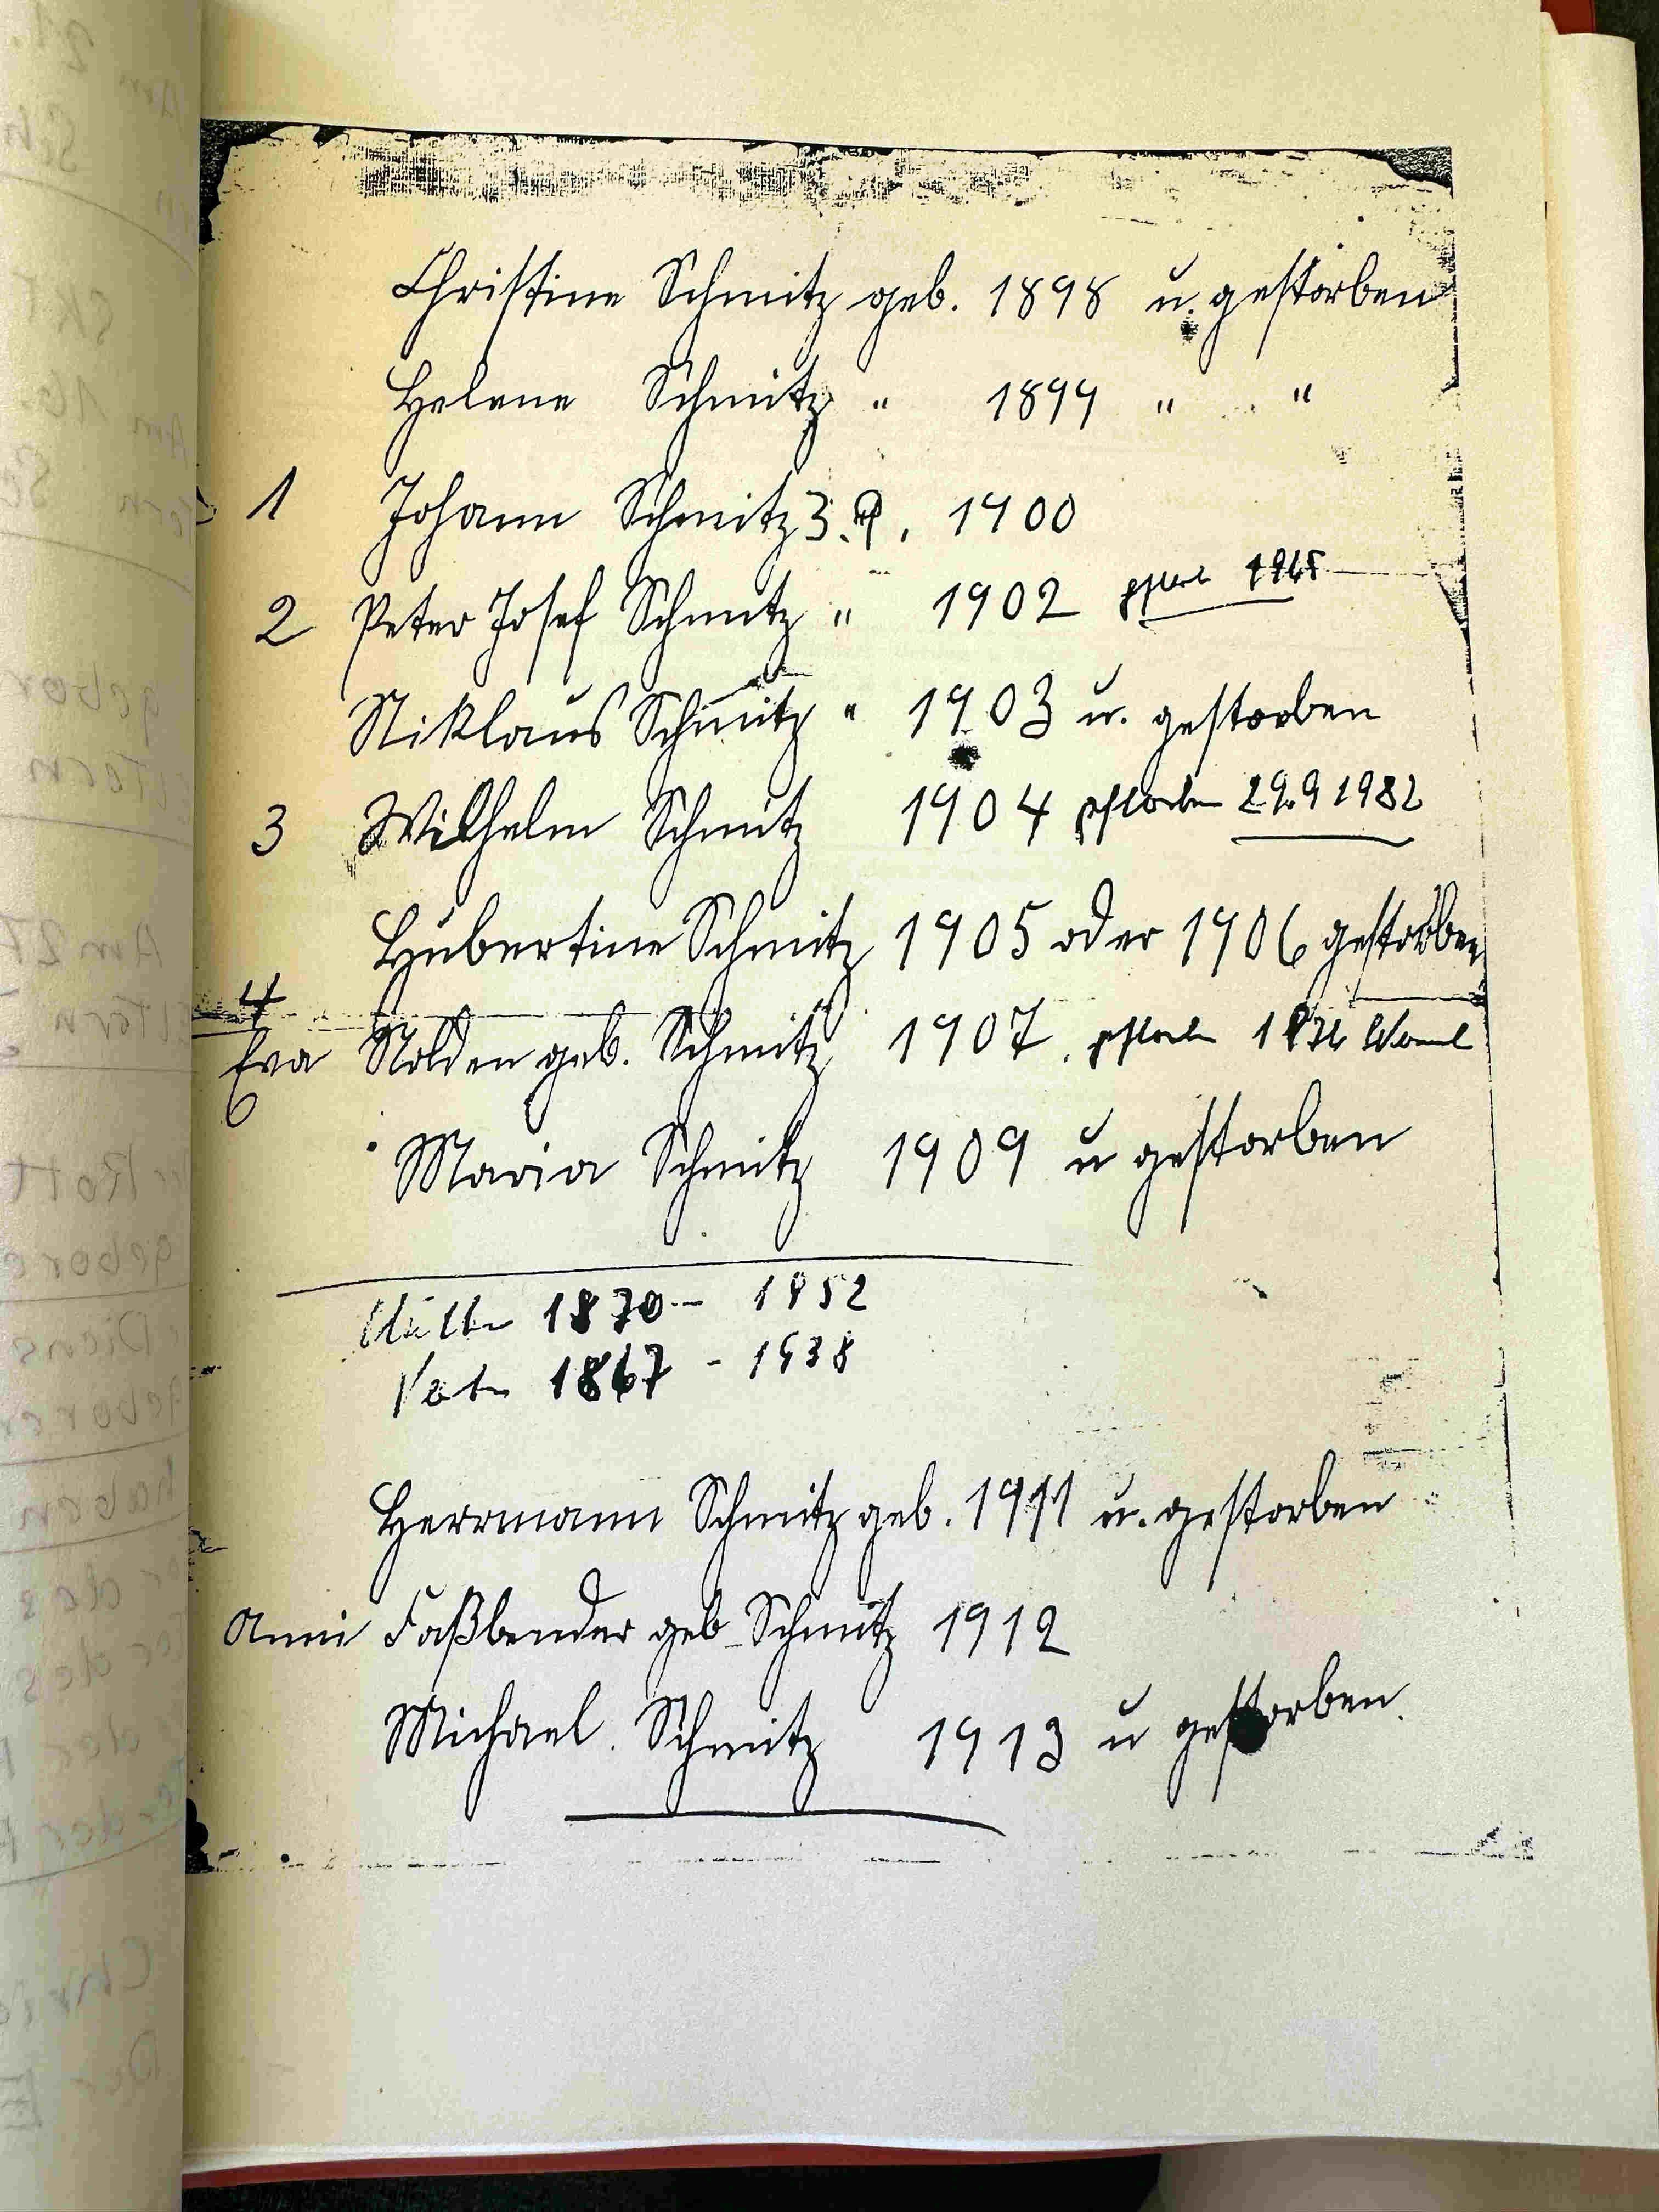 Christine Schmitz geb. 1898 u. gestorben
Helene Schmitz " 1899 " "
1 Johann Schmitz 1900
2 Peter Josef Schmitz " 1902 1965
Niklaus Schmitz " 1903 u. gestorben
3 Wilhelm Schmitz 1904 gestorben 29.9 1982
Hubertine Schmitz 1905 oder 1906 gestorben
4
Eva Nolden geb. Schmitz 1907. gestorben
Maria Schmitz 1909 u gestorben
Mutter 1870 - 1952
Vater 1867 - 1938
Herrmann Schmitz geb. 1911 u. gestorben
Anni Faßbender geb Schmitz 1912
Michael Schmitz 1913 u gestorben.